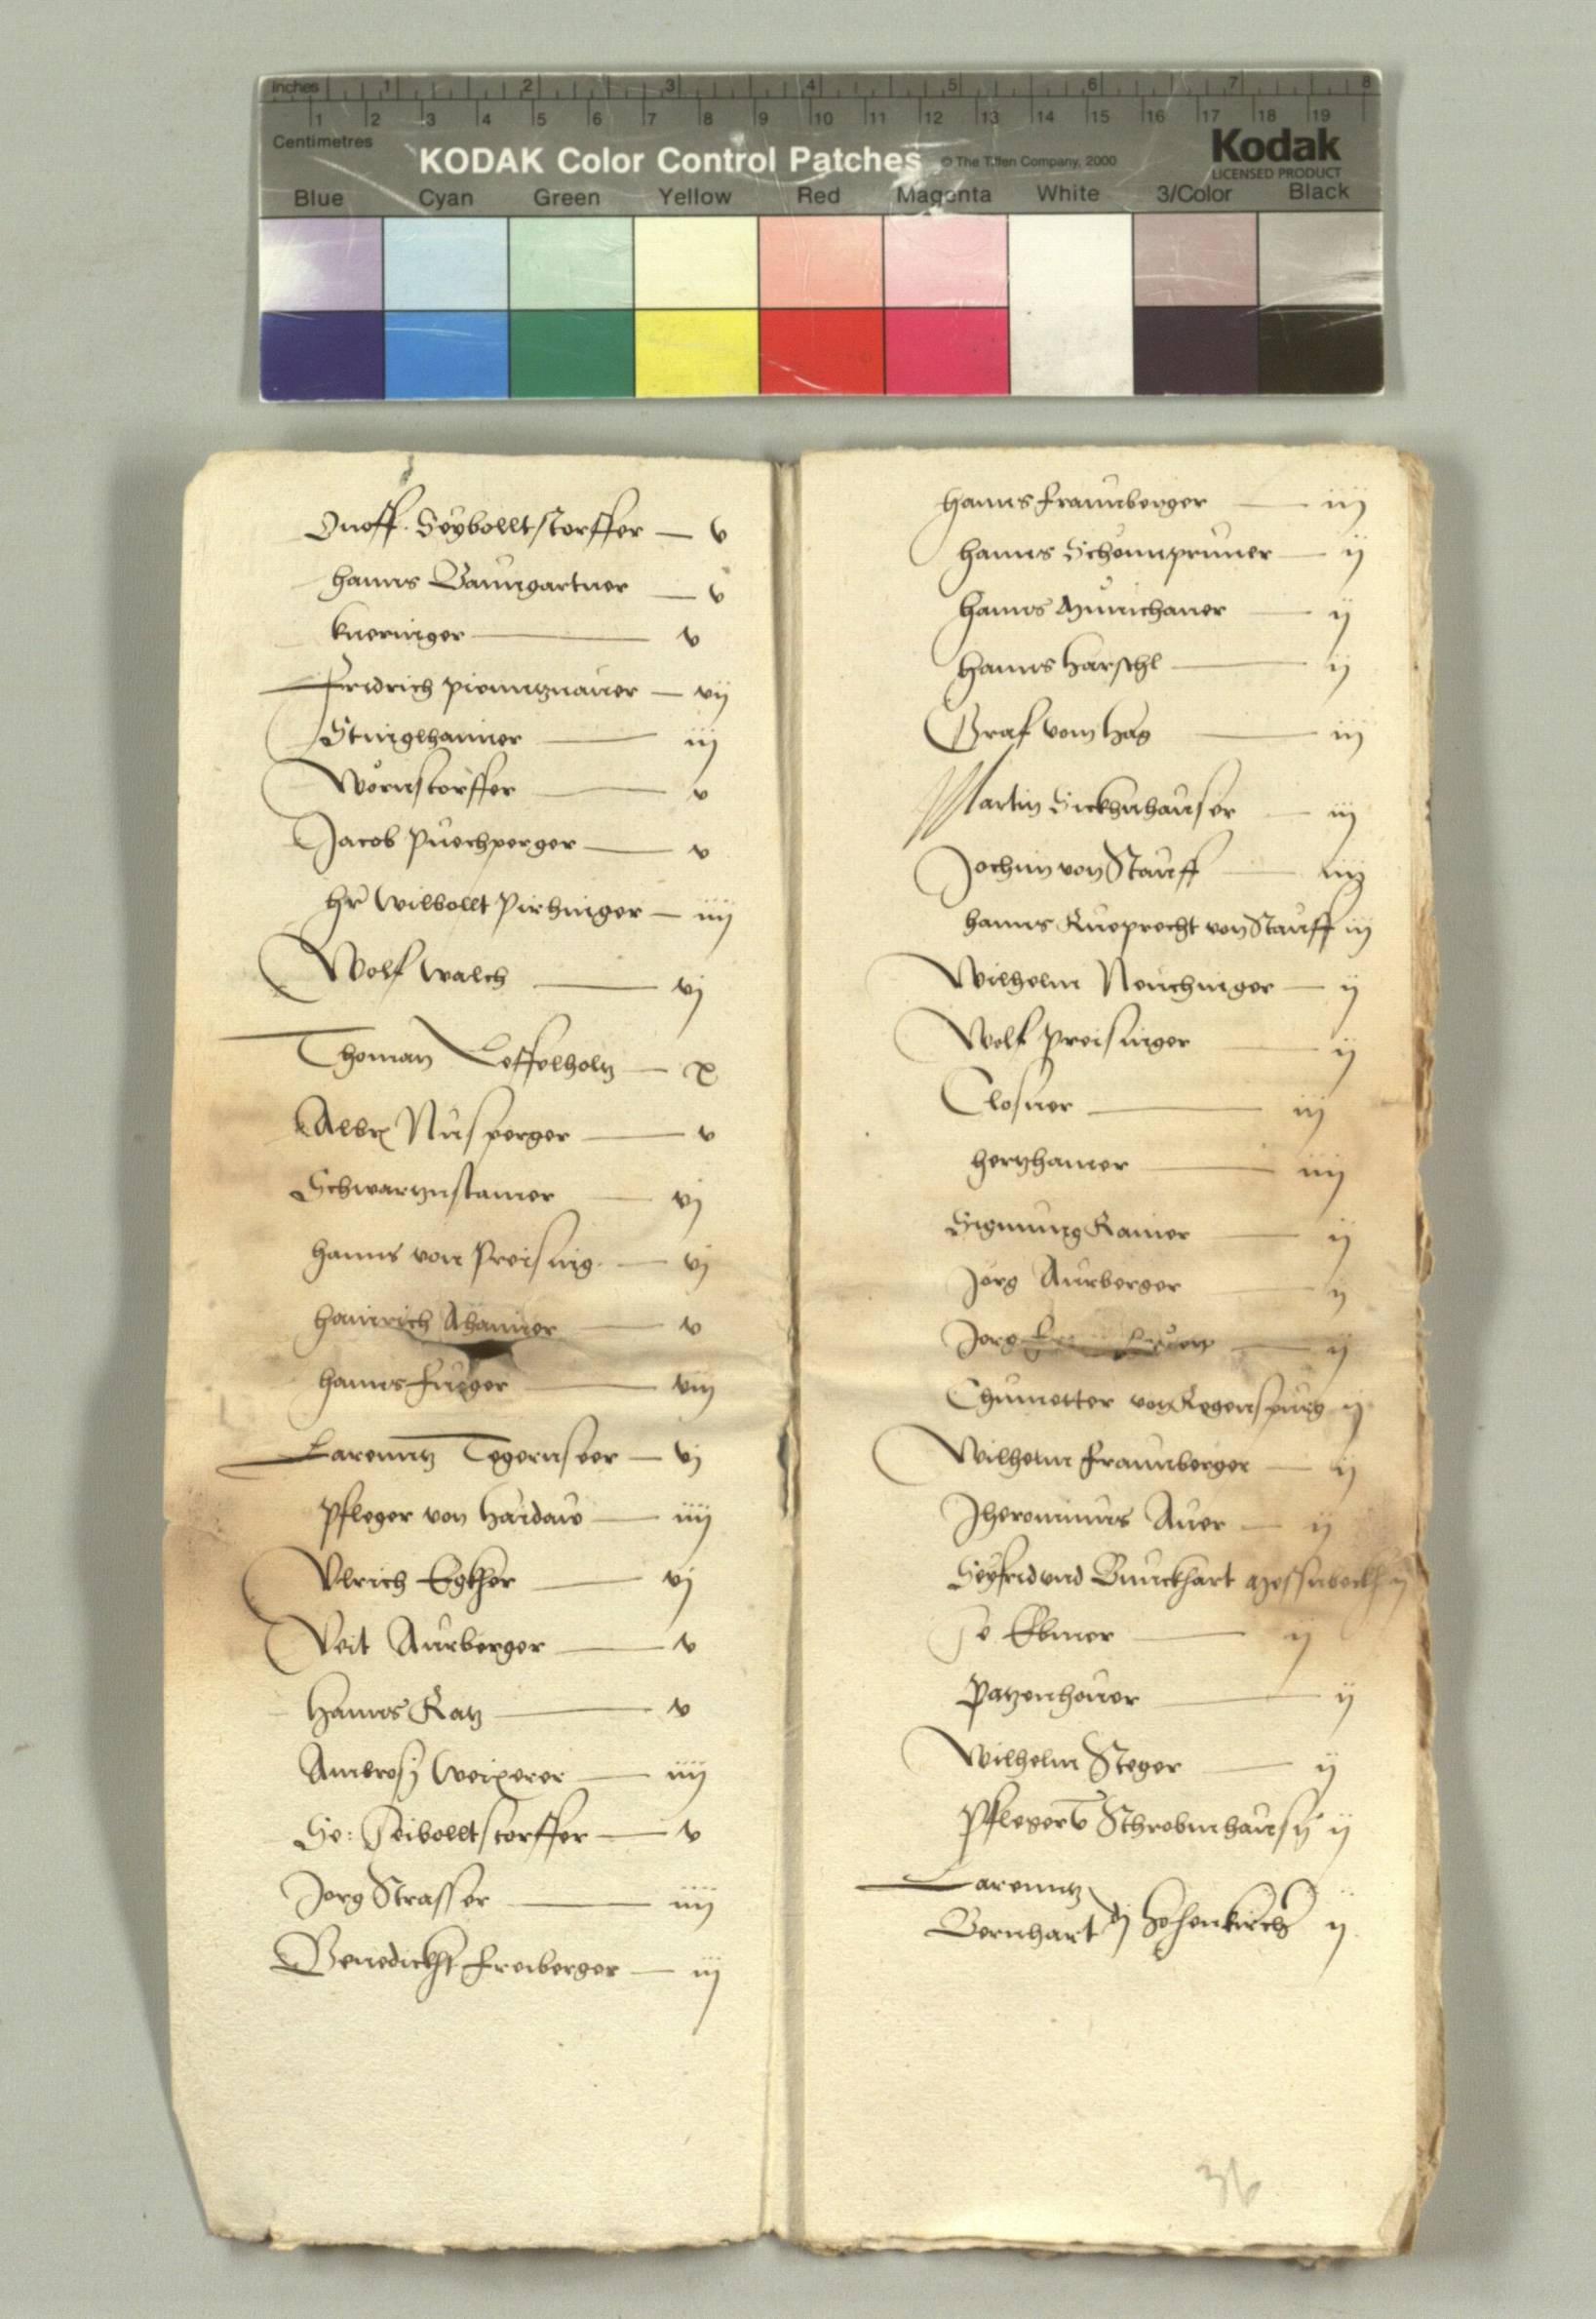 Inches 1 2 3 4 5 6 7 8
Centimetres 1 2 3 4 5 6 7 8 9 10 11 12 13 14 15 16 17 18 19
KODAK Color Control Patches © The Tiffen Company, 2000 Kodak
LICENSED PRODUCT
Blue Cyan Green Yellow Red Magenta White 3/Color Black
Onoff. Seybolltstorffer — v
hanns Baumgartner — v
kneringer — v
Fridrich pientznauer — vij
Stinglhaimer — iij
Wernstorffer — v
Jacob Puechperger — v
hr Wilbollt Pirhinger — iiij
Wolf Walch — vj
Thoman Leffelholtz — x
Albr Nusperger — v
Schwartznstainer — vj
hanns von Preising — vj
hainrich Ahaimer — v
hanns Fueger — viij
Larenntz Tegernseer — vj
Pfleger von haidaw — iiij
Vlrich Egkher — vj
Veit Aurberger — v
hanns Ratz — v
Ambrosj Weixerer — iiij
Se: Seibolltstorffer — v
Jorg Strasser — iiij
Benedickht Freiberger — iij
hanns fraunberger — iij
hanns Schonnpruner — ij
hanns Munichauer — ij
hanns harschl — ij
Graf vom hag — iij
Martin Sickhnhauser — iij
Jochim von Stauff — iiij
hanns Rueprecht von Stauff iij
Wilhelm Neuchinger — ij
Wolf Preisinger — ij
Closner — iij
hertzhamer — iiij
Sigmung Rainer — ij
Jorg Aurberger — ij
Jorg — ij
Thumetter von Regenspurg ij
Wilhelm fraunberger — ij
Jheronimus Auer — ij
Seyfrid vnd Burckhart
Se Ebmer — ij
Patzenhover — ij
Wilhelm Steger — ij
Pfleger v Schrobnhausn ij
Larenntz
Bernhart dj hohenkirch ij
36